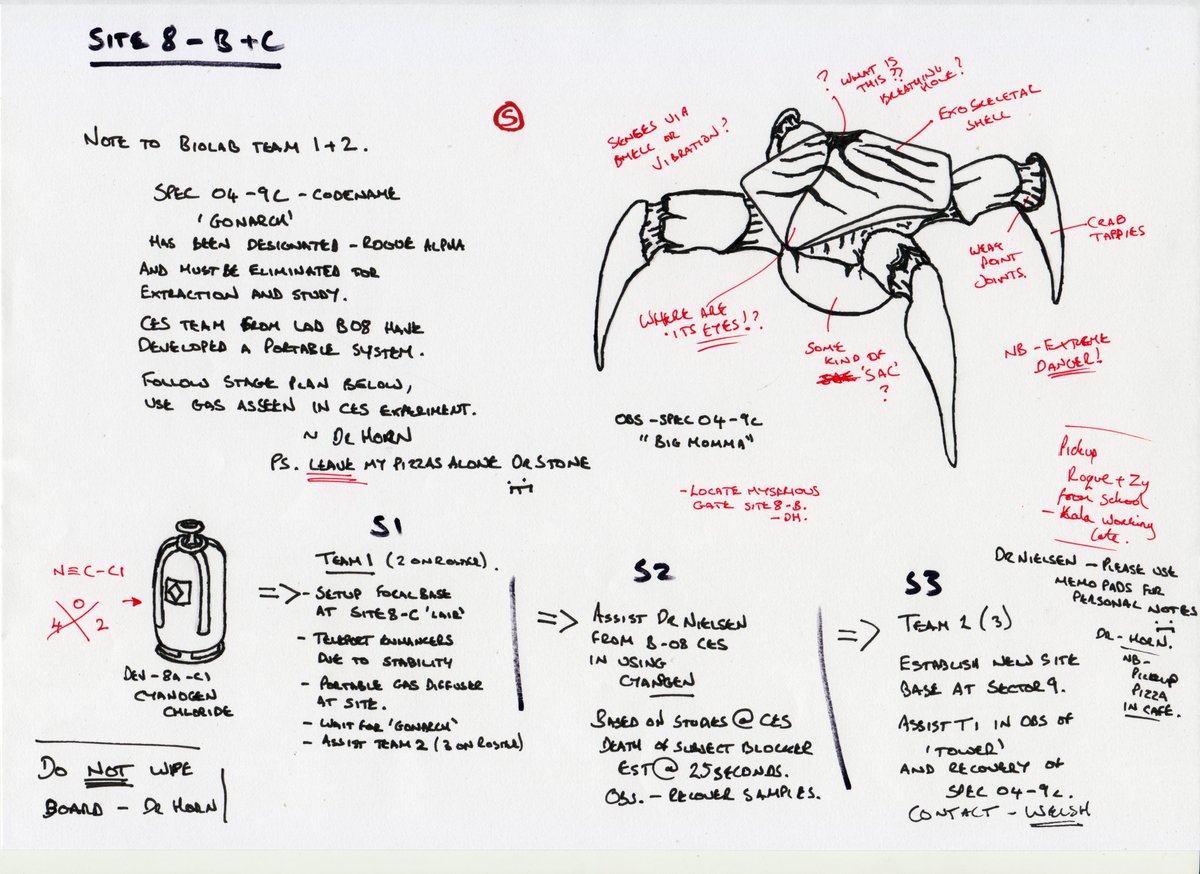 SITE 8 - B + C
NOTE TO BIOLAB TEAM 1 + 2.
SPEC 04 - 9C - CODENAME
'GONARCH'
HAS BEEN DESIGNATED - ROGUE ALPHA
AND MUST BE ELIMINATED FOR
EXTRACTION AND STUDY.
CES TEAM FROM LAB B08 HAVE
DEVELOPED A PORTABLE SYSTEM.
FOLLOW STAGE PLAN BELOW,
USE GAS AS SEEN IN CES EXPERIMENT.
~ DR HORN
PS. LEAVE MY PIZZAS ALONE DR STONE
S
SENSES VIA
SMELL OR
VIBRATION?
?
WHAT IS
THIS??
BREATHING
HOLE?
EXOSKELETAL
SHELL
CRAB
TAPPIES
WEAK
POINT
JOINTS.
WHERE ARE
ITS EYES!?
SOME
KIND OF
'SAC'
?
NB - EXTREME
DANGER!
OBS - SPEC 04 - 9C
"BIG MOMMA"
- LOCATE MYSRIOUS
GATE SITE 8 - B.
- DH.
Pickup
Rogue + Zy
from School
- Kala working
late.
DR NIELSEN - PLEASE USE
MEMO PADS FOR
PERSONAL NOTES
DR - HORN.
NB -
PICKUP
PIZZA
IN CAFE.
N≡C-Cl
0
4 2
DEV - 8A - C1
CYANOGEN
CHLORIDE
S1
TEAM 1 (2 ON ROSTER).
- SETUP FOCAL BASE
AT SITE 8 - C 'LAIR'
- TELEPORT ENHANCERS
DUE TO STABILITY
- PORTABLE GAS DIFFUSER
AT SITE.
- WAIT FOR 'GONARCH'
- ASSIST TEAM 2 (3 ON ROSTER)
S2
ASSIST DR NIELSEN
FROM B - 08 CES
IN USING
CYANOGEN
BASED ON STORES @ CES
DEATH OF SUBJECT BLOCKER
EST @ 25 SECONDS.
OBS. - RECOVER SAMPLES.
S3
TEAM 2 (3)
ESTABLISH NEW SITE
BASE AT SECTOR 9.
ASSIST T1 IN OBS OF
'TOWER'
AND RECOVERY OF
SPEC 04 - 9C.
CONTACT - WELSH
DO NOT WIPE
BOARD - DR HORN